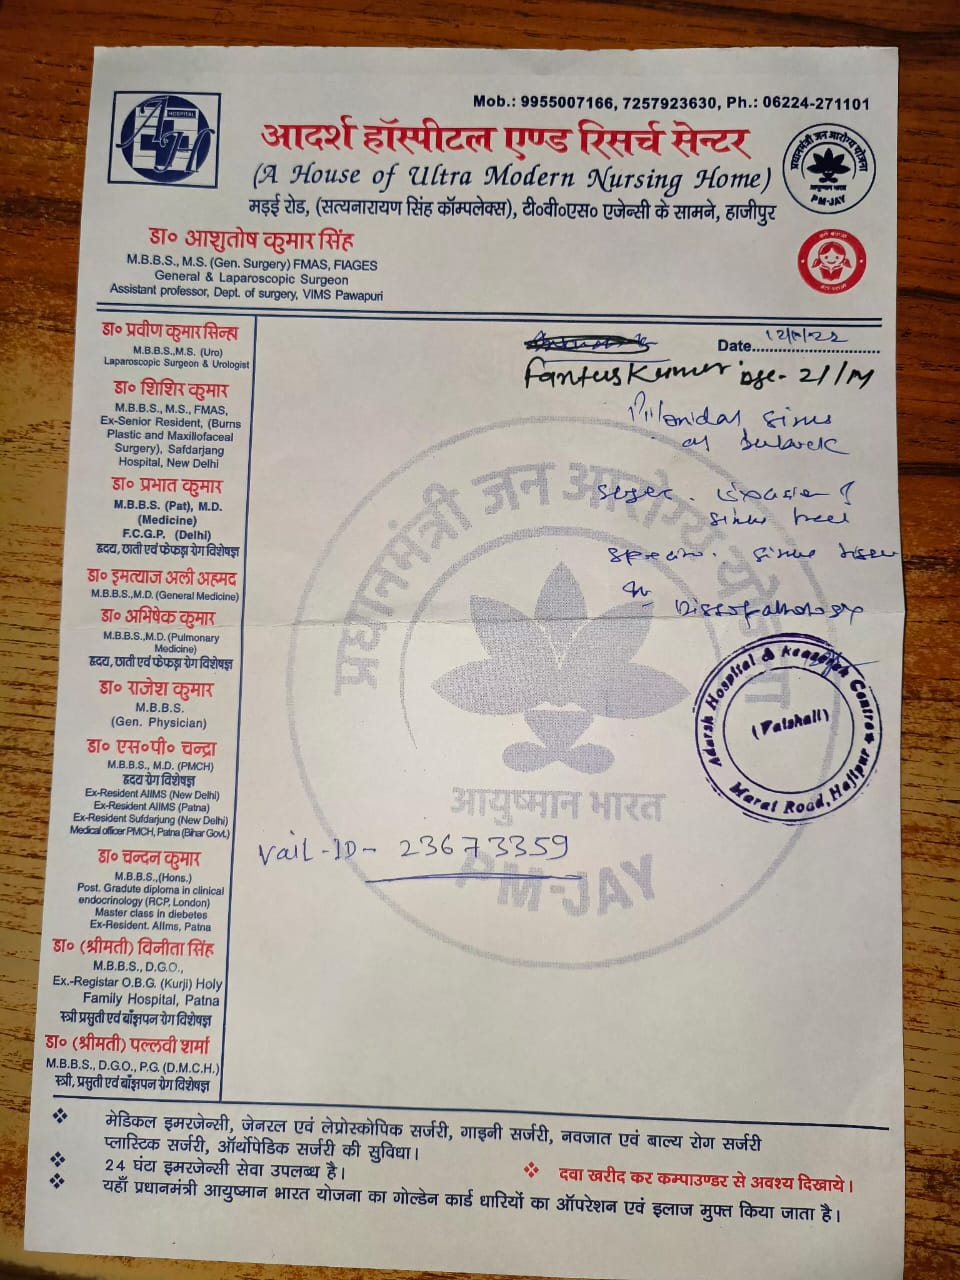 Mob.: 9955007166, 7257923630, Ph.: 06224-271101
HOSPITAL
आदर्श हॉस्पीटल एण्ड रिसर्च सेन्टर
(A House of Ultra Modern Nursing Home)
मड़ई रोड, (सत्यनारायण सिंह कॉम्पलेक्स), टी०वी०एस० एजेन्सी के सामने, हाजीपुर
प्रधानमंत्री जन आरोग्य योजना
आयुष्मान भारत
PM-JAY
डा० आशुतोष कुमार सिंह
M.B.B.S., M.S. (Gen. Surgery) FMAS, FIAGES
General & Laparoscopic Surgeon
Assistant professor, Dept. of surgery, VIMS Pawapuri
डा० प्रवीण कुमार सिन्हा
M.B.B.S.,M.S. (Uro)
Laparoscopic Surgeon & Urologist
डा० शिशिर कुमार
M.B.B.S., M.S., FMAS,
Ex-Senior Resident, (Burns
Plastic and Maxillofaceal
Surgery), Safdarjang
Hospital, New Delhi
डा० प्रभात कुमार
M.B.B.S. (Pat), M.D.
(Medicine)
F.C.G.P. (Delhi)
हृदय, छाती एवं फेफड़ा रोग विशेषज्ञ
डा० इमत्याज अली अहमद
M.B.B.S.,M.D. (General Medicine)
डा० अभिषेक कुमार
M.B.B.S.,M.D. (Pulmonary
Medicine)
हृदय, छाती एवं फेफड़ा रोग विशेषज्ञ
डा० राजेश कुमार
M.B.B.S.
(Gen. Physician)
डा० एस०पी० चन्द्रा
M.B.B.S., M.D. (PMCH)
हृदय रोग विशेषज्ञ
Ex-Resident AIIMS (New Delhi)
Ex-Resident AIIMS (Patna)
Ex-Resident Sufdarjung (New Delhi)
Medical officer PMCH, Patna (Bihar Govt.)
डा० चन्दन कुमार
M.B.B.S.,(Hons.)
Post. Gradute diploma in clinical
endocrinology (RCP, London)
Master class in diebetes
Ex-Resident. AIIms, Patna
डा० (श्रीमती) विनीता सिंह
M.B.B.S., D.G.O.,
Ex.-Registar O.B.G. (Kurji) Holy
Family Hospital, Patna
स्त्री प्रसुती एवं बाँझपन रोग विशेषज्ञ
डा० (श्रीमती) पल्लवी शर्मा
M.B.B.S., D.G.O., P.G. (D.M.C.H.)
स्त्री, प्रसुती एवं बाँझपन रोग विशेषज्ञ
Date
Kumar Age - 21/M
Pilonidal sinus
sinus
sinus
Histopathology
Adarsh Hospital & Research Centre
(Vaishali)
Marai Road, Hajipur
प्रधानमंत्री जन आरोग्य योजना
आयुष्मान भारत
PM-JAY
Vail-ID- 23673359
मेडिकल इमरजेन्सी, जेनरल एवं लेप्रोस्कोपिक सर्जरी, गाइनी सर्जरी, नवजात एवं बाल्य रोग सर्जरी
प्लास्टिक सर्जरी, ऑर्थोपेडिक सर्जरी की सुविधा।
24 घंटा इमरजेन्सी सेवा उपलब्ध है।
दवा खरीद कर कम्पाउण्डर से अवश्य दिखाये।
यहाँ प्रधानमंत्री आयुष्मान भारत योजना का गोल्डेन कार्ड धारियों का ऑपरेशन एवं इलाज मुफ्त किया जाता है।